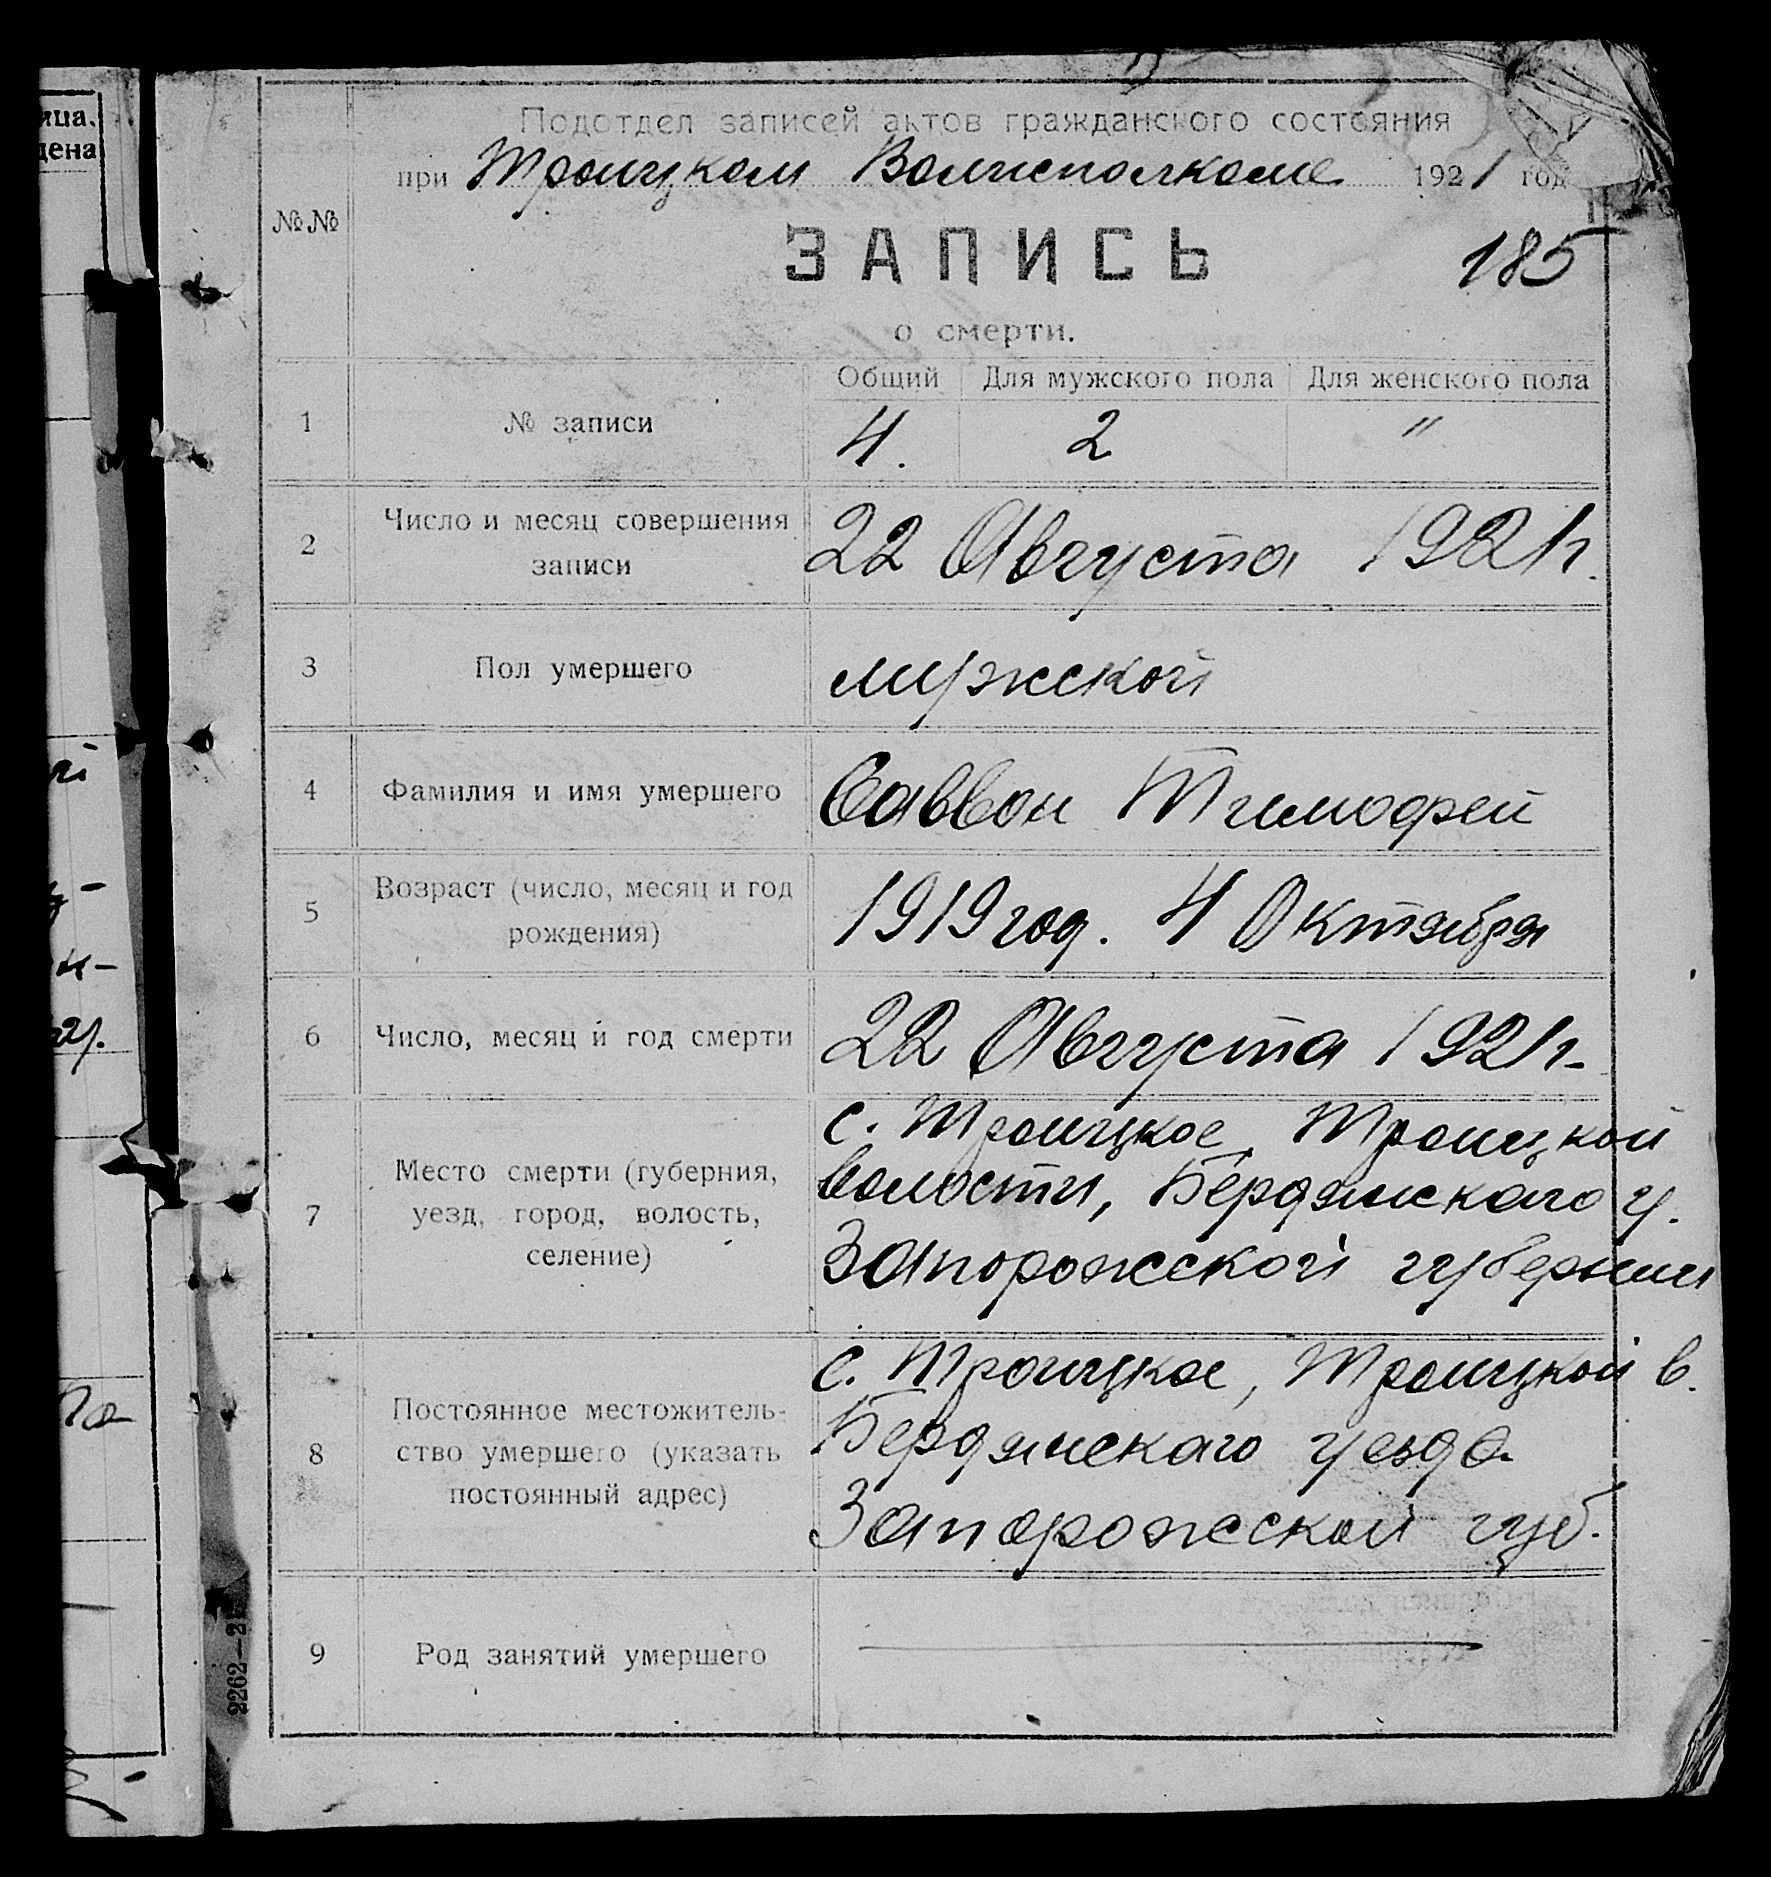 Подотдел записей актов гражданского состояния
при Троицком Волисполкоме 1921 год
№№
ЗАПИСЬ
185
о смерти.
Общий Для мужского пола Для женского пола
1 № записи 4. 2 "
2 Число и месяц совершения записи 22 Августа 1921г.
3 Пол умершего мужской
4 Фамилия и имя умершего Саввон Тимофей
5 Возраст (число, месяц и год рождения) 1919 год. 4 Октября
6 Число, месяц и год смерти 22 Августа 1921г.
7 Место смерти (губерния, уезд, город, волость, селение)
с. Троицкое, Троицкой
волости, Бердянского у.
Запорожской губернии
8 Постоянное местожительство умершего (указать постоянный адрес)
с. Троицкое, Троицкой в.
Бердянскаго уезда
Запорожской губ.
9 Род занятий умершего
2262—2